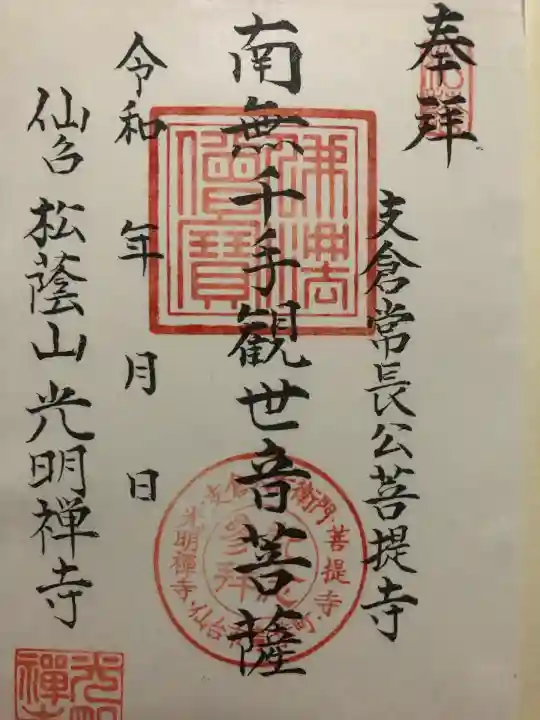 奉拝
支倉常長公菩提寺
南無千手観世音菩薩
令和 年 月 日
仙台 松蔭山光明禅寺
佛法僧寳
支倉 衛門・菩提寺
光明禅寺・仙台 町
参拝